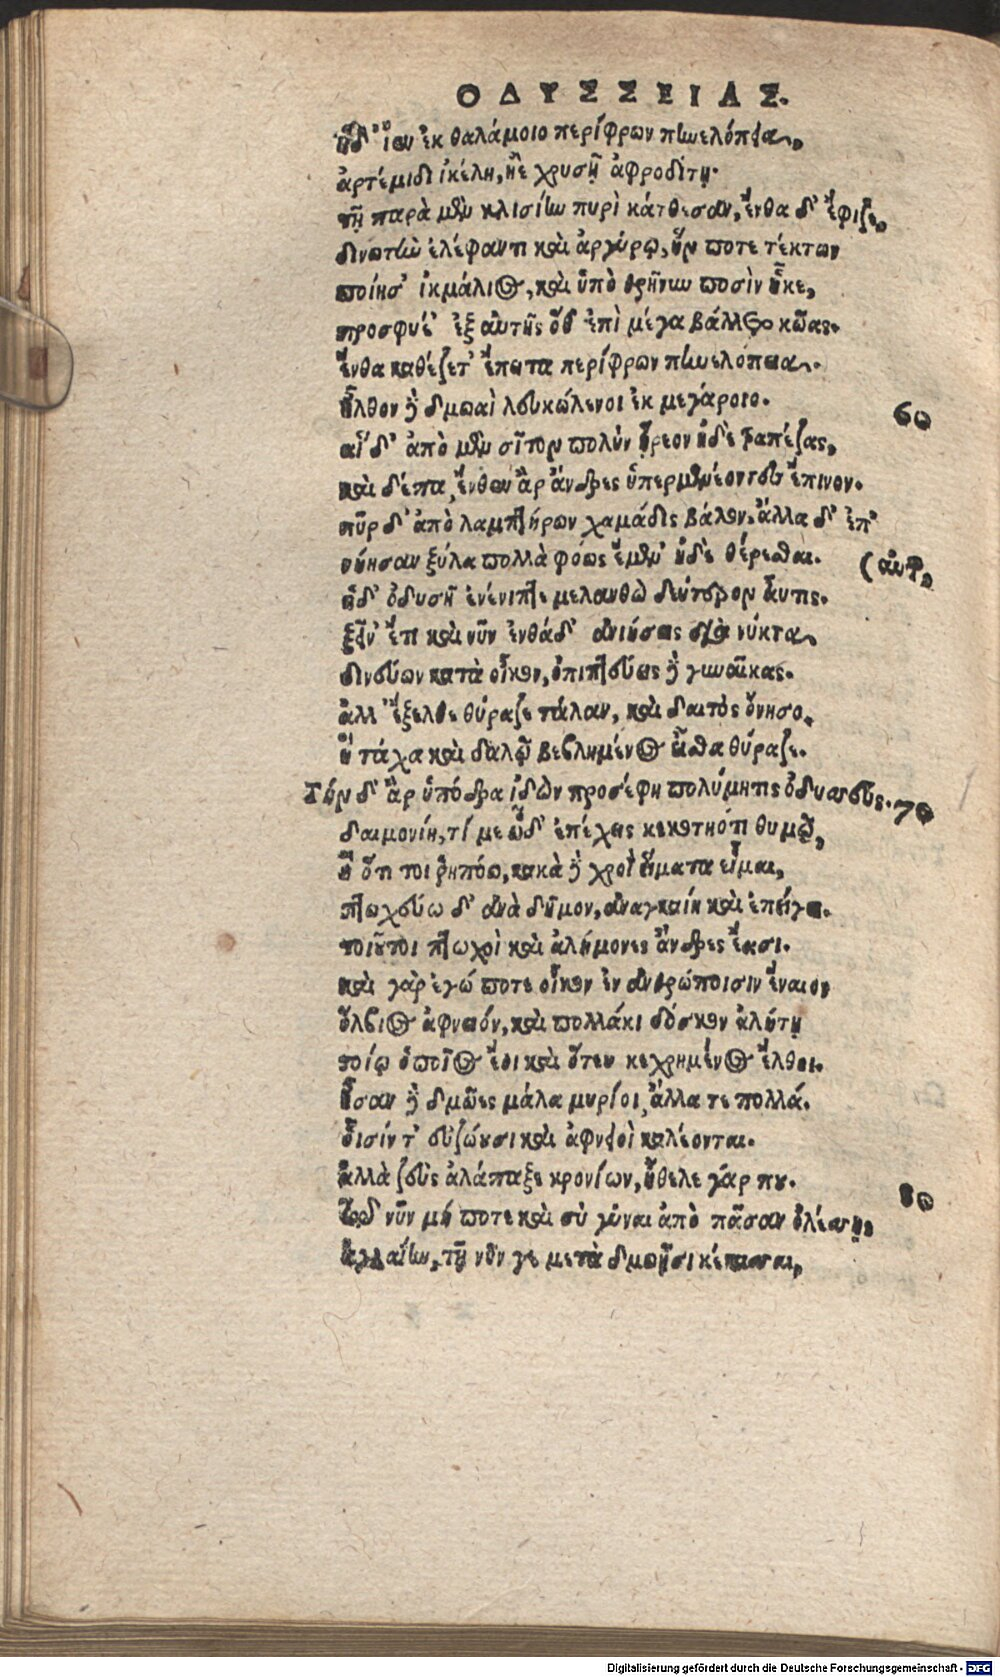 ΟΔΥΣΣΕΙΑΣ.
ἡ δ' ἴεν ἐκ θαλάμοιο περίφρων πηνελόπεια,
ἀρτέμιδι ἰκέλη, ἠὲ χρυσῇ ἀφροδίτῃ.
τῇ παρὰ μὲν κλισίην πυρὶ κάτθεσαν, ἔνθα δ' ἔφιζε,
δινωτὴν ἐλέφαντι καὶ ἀργύρῳ, ἥν ποτε τέκτων
ποίησ' ἰκμάλιος, καὶ ὑπὸ θρῆνυν ποσὶν ἧκε,
προσφυέ' ἐξ αὐτῆς ὅθ' ἐπὶ μέγα βάλλετο κῶας.
ἔνθα καθέζετ' ἔπειτα περίφρων πηνελόπεια.
ἦλθον δὲ δμωαὶ λευκώλενοι ἐκ μεγάροιο. 60
αἱ δ' ἀπὸ μὲν σῖτον πολὺν ᾕρεον ἠδὲ τραπέζας,
καὶ δέπα, ἔνθεν ἄρ' ἄνδρες ὑπερμενέοντες ἔπινον.
πῦρ δ' ἀπὸ λαμπτήρων χαμάδις βάλον, ἄλλα δ' ἐπ'
νήησαν ξύλα πολλὰ φόως ἔμεν ἠδὲ θέρεσθαι. (αὐτῶν
ἡ δ' ὀδυσῆ ἐνένιπτε μελανθὼ δεύτερον αὖτις.
ξεῖν' ἔτι καὶ νῦν ἐνθάδ' ἀνιήσεις διὰ νύκτα,
δινεύων κατὰ οἶκον, ὀπιπτεύεις δὲ γυναῖκας.
ἀλλ' ἔξελθε θύραζε τάλαν, καὶ δαιτὸς ὄνησο,
ἢ τάχα καὶ δαλῷ βεβλημένος εἶσθα θύραζε.
Τὴν δ' ἄρ' ὑπόδρα ἰδὼν προσέφη πολύμητις ὀδυσσεύς. 70
δαιμονίη, τί με ὧδ' ἐπέχεις κεκοτηότι θυμῷ,
ἢ ὅτι τοι ῥηπόω, κακὰ δὲ χροῒ εἵματα εἷμαι,
πτωχεύω δ' ἀνὰ δῆμον, ἀναγκαίη καὶ ἐπείγει.
τοιοῦτοι πτωχοὶ καὶ ἀλήμονες ἄνδρες ἔασι.
καὶ γὰρ ἐγώ ποτε οἶκον ἐν ἀνθρώποισιν ἔναιον
ὄλβιος ἀφνειόν, καὶ πολλάκι δόσκον ἀλήτῃ
τοίῳ ὁποῖος ἔοι καὶ ὅτευ κεχρημένος ἔλθοι.
ἦσαν δὲ δμῶες μάλα μυρίοι, ἄλλα τε πολλά.
οἷσίν τ' εὐζώουσι καὶ ἀφνειοὶ καλέονται.
ἀλλὰ ζεὺς ἀλάπαξε κρονίων, ἤθελε γάρ που. 80
τῷ νῦν μή ποτε καὶ σὺ γύναι ἀπὸ πᾶσαν ὀλέσσῃς
ἀγλαΐην, τῇ νῦν γε μετὰ δμωῇσι κέκασσαι,
Digitalisierung gefördert durch die Deutsche Forschungsgemeinschaft - DFG